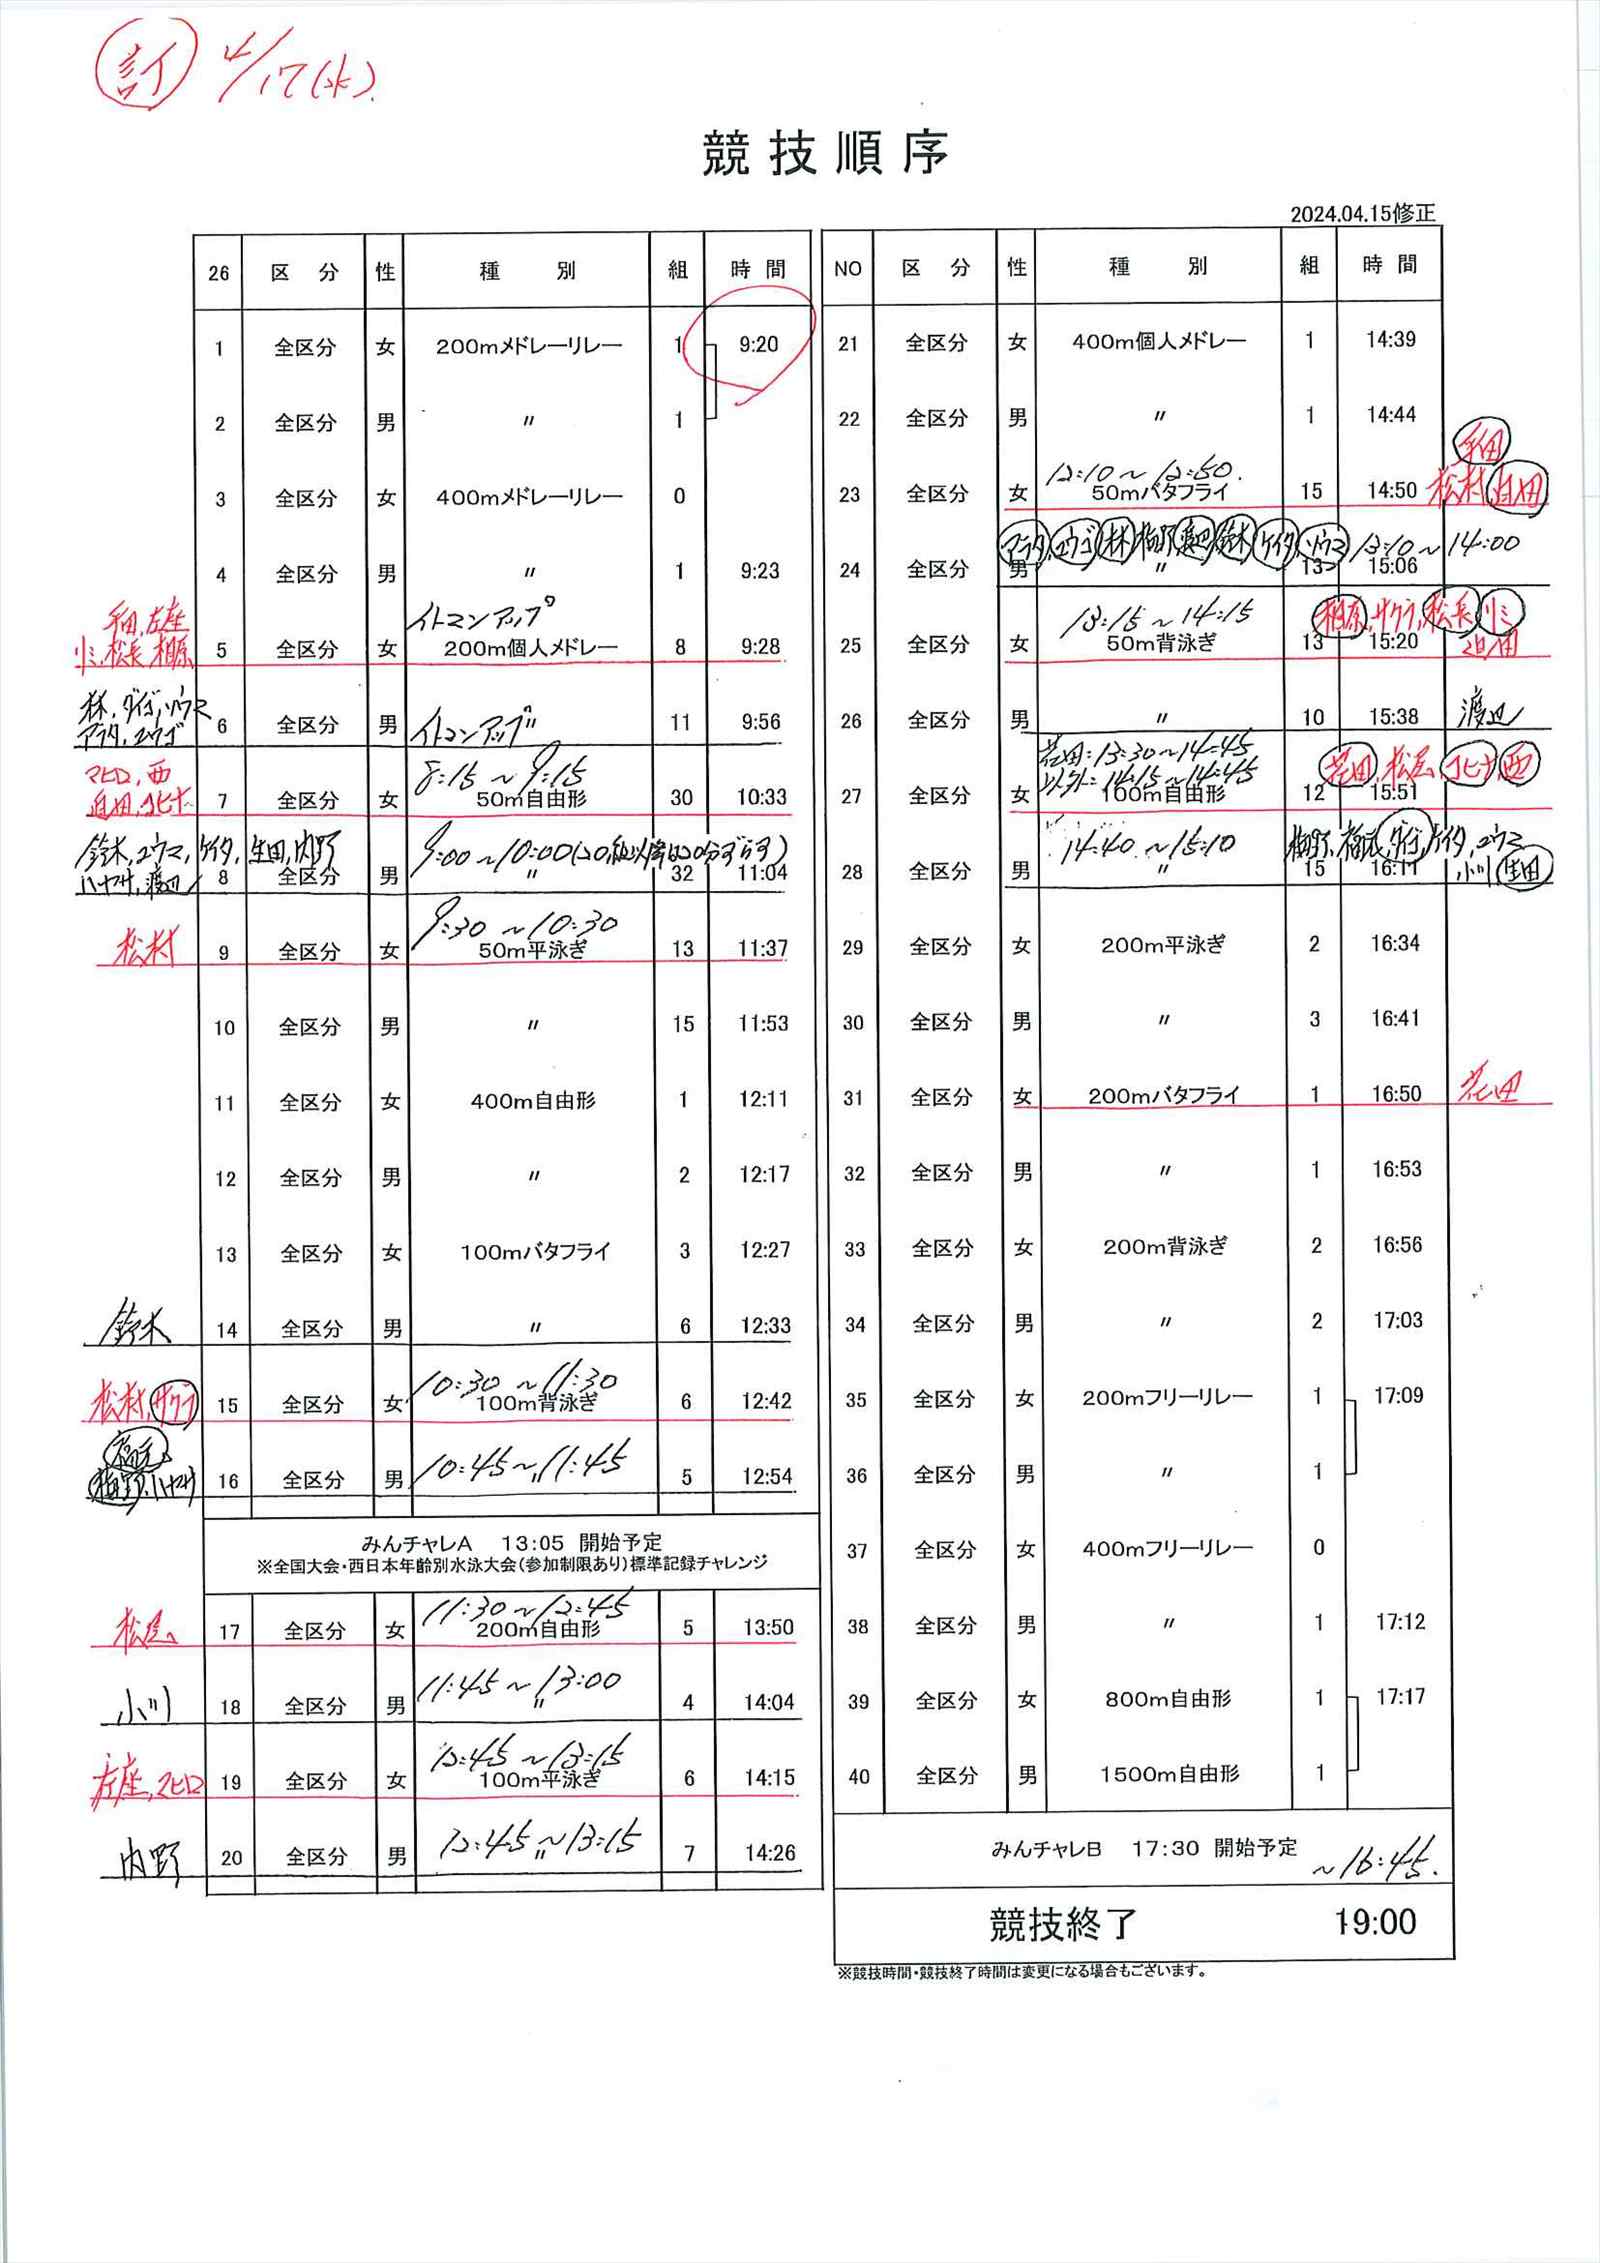 訂 4/17(水).
競技順序
2024.04.15修正
26 区分 性 種別 組 時間
1 全区分 女 200mメドレーリレー 1 9:20
2 全区分 男 〃 1
3 全区分 女 400mメドレーリレー 0
4 全区分 男 〃 1 9:23
イトマンアップ
5 全区分 女 200m個人メドレー 8 9:28
6 全区分 男 イトマンアップ 〃 11 9:56
マヒロ, 西
8:15 ~ 9:15
7 全区分 女 50m自由形 30 10:33
鈴木, ユウマ, ケイタ, 生田, 内野
9:00 ~ 10:00(20組以降は20分ずらす)
ハヤサ, 渡辺 8 全区分 男 〃 32 11:04
9:30 ~ 10:30
松村 9 全区分 女 50m平泳ぎ 13 11:37
10 全区分 男 〃 15 11:53
11 全区分 女 400m自由形 1 12:11
12 全区分 男 〃 2 12:17
13 全区分 女 100mバタフライ 3 12:27
鈴木 14 全区分 男 〃 6 12:33
10:30 ~ 11:30
松村, サクラ 15 全区分 女 100m背泳ぎ 6 12:42
10:45 ~ 11:45
16 全区分 男 〃 5 12:54
みんチャレA 13:05 開始予定
※全国大会・西日本年齢別水泳大会(参加制限あり)標準記録チャレンジ
11:30 ~ 12:45
松尾 17 全区分 女 200m自由形 5 13:50
11:45 ~ 13:00
小川 18 全区分 男 〃 4 14:04
12:45 ~ 13:15
左座, マヒロ 19 全区分 女 100m平泳ぎ 6 14:15
12:45 ~ 13:15
内野 20 全区分 男 〃 7 14:26
NO 区分 性 種別 組 時間
21 全区分 女 400m個人メドレー 1 14:39
22 全区分 男 〃 1 14:44
12:10 ~ 12:50.
23 全区分 女 50mバタフライ 15 14:50 松村
アラタ ユウゴ 林 梅野 渡辺 鈴木 ケイタ ソウマ 13:10 ~ 14:00
24 全区分 男 〃 13 15:06
13:15 ~ 14:15
相原, サクラ, 松長
25 全区分 女 50m背泳ぎ 13 15:20
26 全区分 男 〃 10 15:38 渡辺
花田:13:30~14:45
以外:14:15~14:45
花田, 松尾, コヒナ, 西
27 全区分 女 100m自由形 12 15:51
14:40 ~ 15:10
28 全区分 男 〃 15 16:11 小川 生田
29 全区分 女 200m平泳ぎ 2 16:34
30 全区分 男 〃 3 16:41
31 全区分 女 200mバタフライ 1 16:50 花田
32 全区分 男 〃 1 16:53
33 全区分 女 200m背泳ぎ 2 16:56
34 全区分 男 〃 2 17:03
35 全区分 女 200mフリーリレー 1 17:09
36 全区分 男 〃 1
37 全区分 女 400mフリーリレー 0
38 全区分 男 〃 1 17:12
39 全区分 女 800m自由形 1 17:17
40 全区分 男 1500m自由形 1
みんチャレB 17:30 開始予定
~16:45.
競技終了 19:00
※競技時間・競技終了時間は変更になる場合もございます。